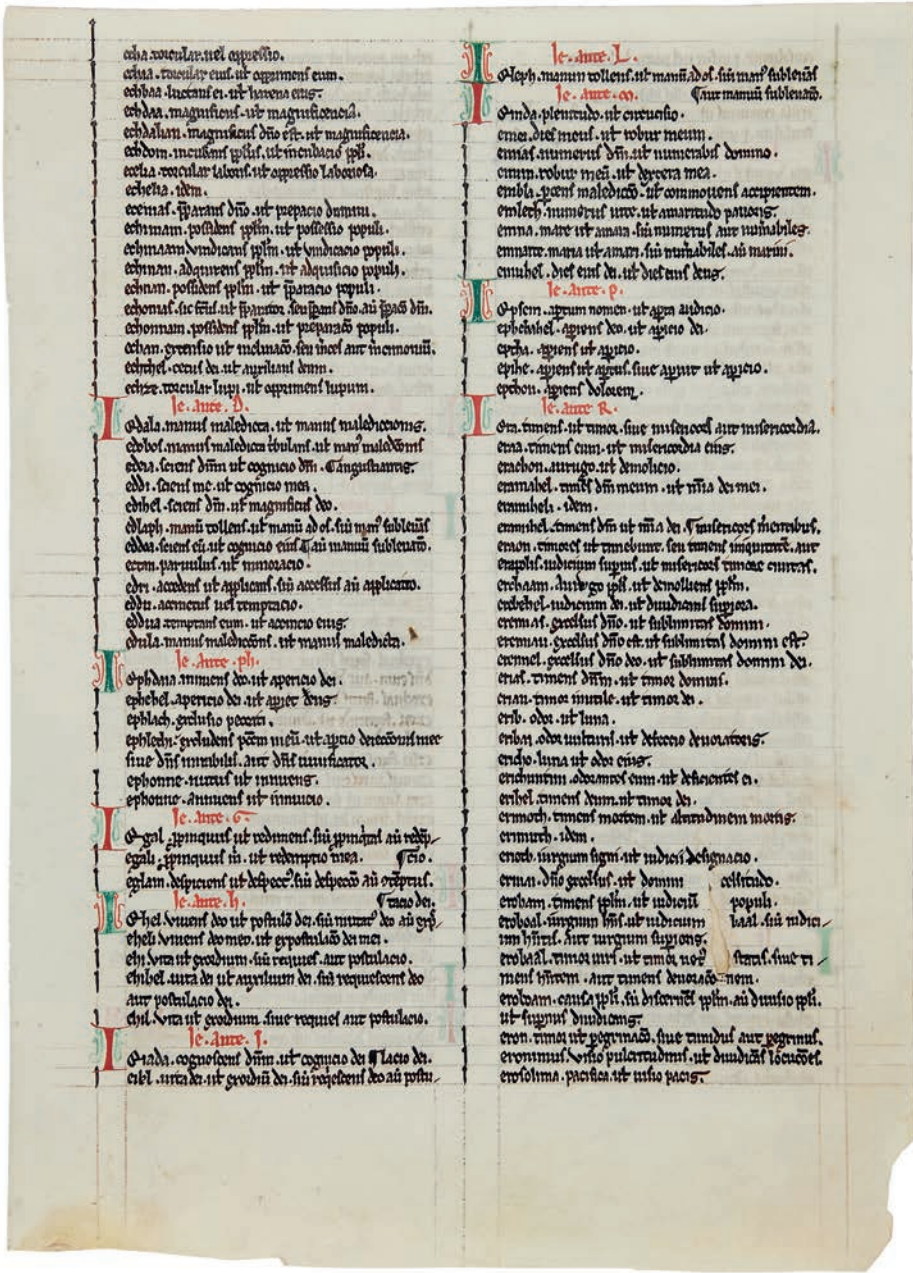 echa. torcular. uel oppressio.
echaa. torcular eius. ut opprimens eum.
echbaa. luctans ei. ut harena eius.
echdaa. magnificus. ut magnificencia.
echdalian. magnificus dño est. ut magnificencia.
echdom. incubans pplus. ut incubacio ppli.
ecelia. torcular laboris. ut oppressio laboriosa.
echelia. idem.
ecemas. p̄parans dño. ut prepacio domini.
echimam. possidens pplm. ut possessio populi.
echmaam vindicans pplm. ut vindicacio populi.
echman. adquirens pplm. ut adquisicio populi.
echnan. possidens pplm. ut p̄paracio populi.
echonnam. possidens pplm. ut preparacō populi.
echthel. cetus dei. ut auxilians deum.
echze. torcular lupi. ut opprimens lupum.
Ie. ante. D.
Iedala. manus maledicta. ut manus malediccionis.
edeia. sciens dñm ut cognicio dñi. angustiantis.
eddi. sciens me. ut cognicio mea.
edihel. sciens dñm. ut magnificus deo.
edlaph. manū tollens. ut manū ad os. siū man9 subleuās
eddoa. sciens eū. ut cognicio eius aū manuū subleuatō.
ectan. paruulus. ut minoracio.
edri. accedens ut applicans. siū accessus aū applicatio.
eddu. acometus uel temptacio.
eddua. temptans eum. ut acomcio eius.
edula. manus malediccōnis. ut manus maledicta.
Ie. ante. ph.
Iephdaia. aniuens deo. ut apericio dei.
ephebel. apericio dei. ut apiet deus.
ephlach. exclusio peccati.
siue dñs mirabilis. aut dñs uiuificator.
ephonne. nutus ut innuens.
ephonne. annuens ut innuicio.
Ie. ante. G.
Iegal. ppinquus ut redimens. siū ppinqtas aū redēp/
egali. ppinquus m̄. ut redemptio mea. tio.
eglam. despiciens ut despect9. siū despectō aū cōteptus.
Ie. ante. h. tacio dei.
Iehel. viuens deo ut postulō dei. siū mutat9 deo aū exp̄/
eheli viuens deo meo. ut expostulacō dei mei.
ehi. vita ut exordium. siū requies. aut postulacio.
ehibel. uita dei ut auxilium dei. siū requiescens deo
aut postulacio dei.
ehil. vita ut exordium. siue requies aut postulacio.
Ie. ante. I.
Ieiada. cognoscens dñm. ut cognicio dei lacio dei.
eibl. uita dei. ut exordiū dei. siū reqiescens deo aū postu/
Ie. ante. L.
Ieleph. manum tollens. ut manū ad os. siū man9 subleuās
Ie. ante. m. aut manuū subleuatō.
Iemda. plenitudo. ut circuisio.
emei. dies meus. ut robur meum.
emias. numerus dñi. ut numerabit domino.
emin. robur meū. ut dextera mea.
embla. pcens maledictō. ut commouens accipientem.
emlech. numerus uite. ut amaritudo pauoris.
emna. mare ut amara. siū numerus aut numabiles.
emnarte. maria ut amari. siū numabiles. aū marini.
emuhel. dies eius dei. ut dies eius deus.
Ie. ante. p.
Iepsem. aptum nomen. ut apta audicio.
ephthahel. apiens deo. ut apicio dei.
eptha. apiens ut apicio.
epthe. apiens ut aptus. siue apiuit ut apicio.
epthon. apiens dolorem.
Ie. ante R.
Iera. timens. ut timor. siue misericors aut misericordia.
eraa. timens eum. ut misericordia eius.
erachon. aurugo. ut demolicio.
eramahel. timēs dñi meum. ut mīa dei mei.
eramheli. idem.
eramhel. timens dñi ut mīa dei.
eraon. timores ut timebunt. seu timens iniquitatē. aut
eraplis. iudicium supius. ut misericors timore ciuitas.
erchaam. aurugo ppli. ut demolliens pplm.
erebehel. iudicium dei. ut diuidicans supiora.
eremias. excelsus dño. ut sublimitas domini.
eremiau. excelsus dño est. ut sublimitas domini est.
eremiel. excelsus dño deo. ut sublimitas domini dei.
erias. timens dñm. ut timor domini.
erian. timor inutile. ut timor dei.
erib. odor. ut luna.
eribai. odor uulturis. ut defeccio deuoratoris.
ericho. luna ut odor eius.
erichuntim. odorantes eum. ut deficientes ei.
erihel. timens deum. ut timor dei.
erimoth. timens mortem. ut altitudinem mortis.
erimuth. idem.
erioth. iurgium signi. ut iudicii designacio.
ermai. dño excelsus. ut domini celsitudo.
erobam. timens pplm. ut iudiciū populi.
erobaal. iurgium hn̄s. ut iudicium baal. siū iudici-
um hn̄tis. aut iurgium supioris.
erobaal. timor uiri. ut timor uet9 statis. siue ti/
mens hn̄tem. aut timens deuoracō-nem.
eroboam. causa ppli. siū discernēs pplm. aū diuisio ppli.
ut supnus diiudicans.
eron. timor ut pegrinacō. siue timidus aut pegrinus.
eronimus. visio pulcritudinis. ut diuidicās locucōes.
erosolima. pacifica. ut uisio pacis.